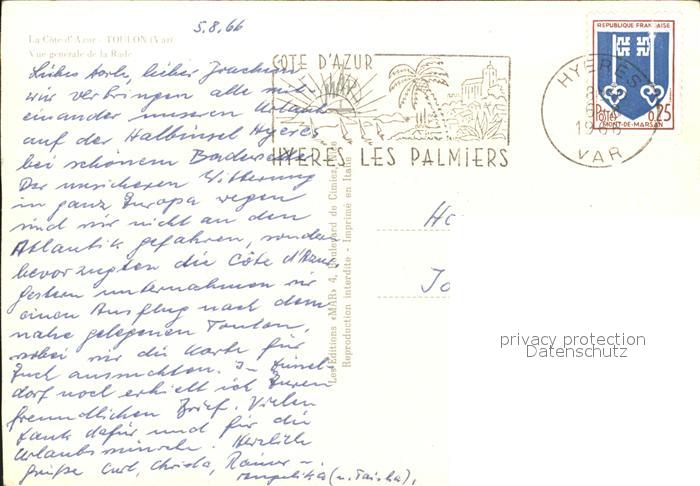 5.8.66
La Côte d'Azur - TOULON (Var)
Vue générale de la Rade
Liebes Dorle, lieber Joachim
wir verbringen alle mit-
einander unseren Urlaub
auf der Halbinsel Hyères
bei schönem Badewetter.
Der unsicheren Witterung
in ganz Europa wegen
sind wir nicht an den
Atlantik gefahren, sondern
bevorzugten die Côte d'Azur.
Gestern unternahmen wir
einen Ausflug nach dem
nahe gelegenen Toulon,
wobei wir die Karte für
Euch aussuchten. In Düssel-
dorf noch erhielt ich Euren
freundlichen Brief. Vielen
Dank dafür und für die
Urlaubswünsche. Herzliche
Grüße Curt, Christa, Rainer u.
Les Editions «MAR» 4, Boulevard de Cimiez, Nice
Reproduction interdite - Imprimé en Italie
COTE D'AZUR
HYERES LES PALMIERS
HYERES
1966
VAR
REPUBLIQUE FRANÇAISE
Postes 0,25
MONT-DE-MARSAN
Ho
Jo
privacy protection
Datenschutz